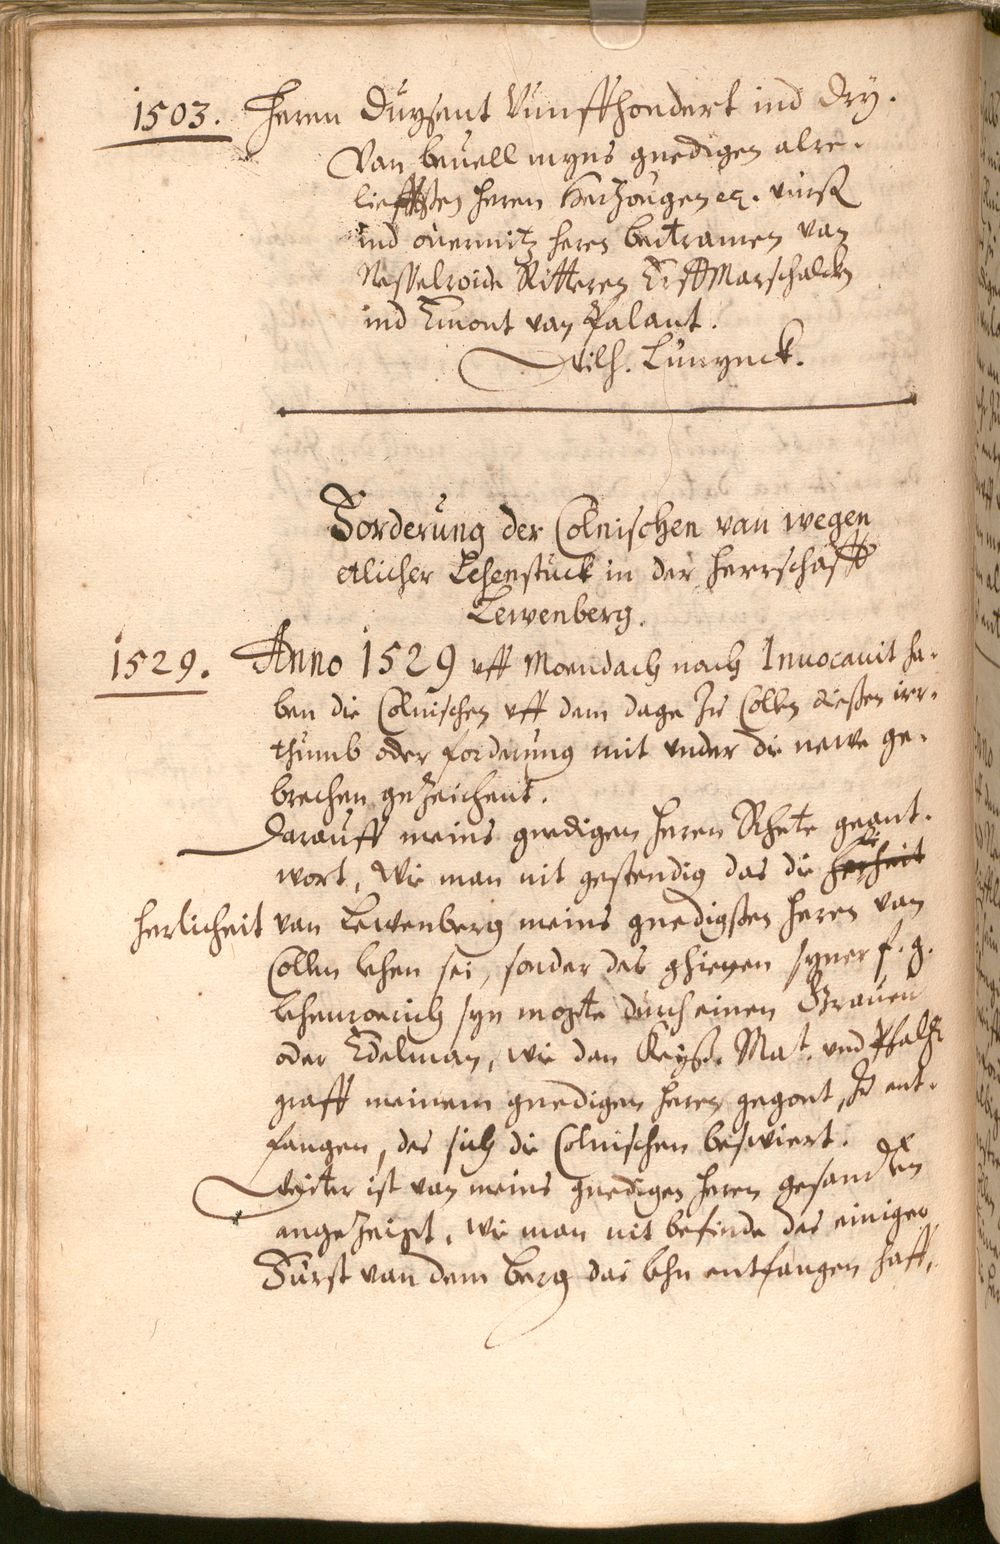 1503. Heren Duysent Vunffhondert ind dry.
Van beuell myns gnedigen alre-
lieffsten heren Hertzougen etc. vursß
ind ouermitz heren Bertramen van
Nesselroide Ritteren ErffMarschalcken
ind Emont van Palant.
Wilh. Lunynck.
Forderung der Colnischen van wegen
etlicher Lehenstuck in der herrschafft
Lewenberg.
1529. Anno 1529 vff Moendach nach Inuocauit ha-
ben die Colnischen vff dem dage zu Collen diesen irr-
thumb oder forderung mit vnder die newe ge-
brechen gezeichent.
Darauff meins gnedigen heren Rhete geant-
wort, Wie man nit gestendig das die
herlicheit van Lewenberg meins gnedigsten heren van
Collen lehen sei, sonder das ghienen syner f. g.
lehenroerich syn mochte durch einen Grauen
oder Edelman, wie dan Keyß. Mat. vnd Pfaltz-
graff meinem gnedigen heren gegont, zu ent-
fangen, des sich die Colnischen beswiert.
Weiter ist van meins gnedigen heren gesandten
angezeigt, wie man nit befinde das einiger
Furst van dem Berg das lehn entfangen haff,